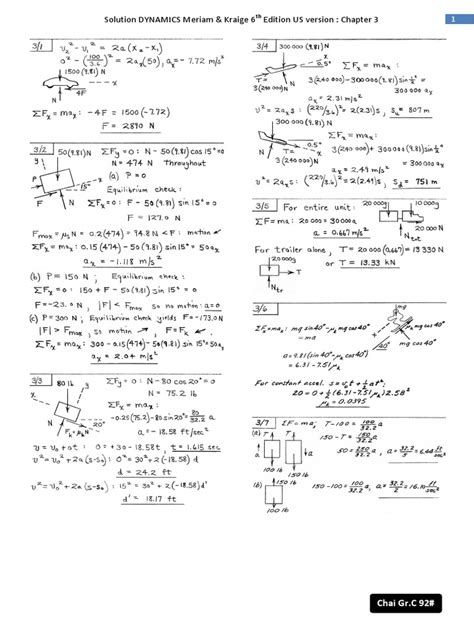 Solution DYNAMICS Meriam & Kraige 6th Edition US version : Chapter 3
1
3/1 v₂² - v₁² = 2a(x₂ - x₁)
0² - (100/3.6)² = 2aₓ(50), aₓ = - 7.72 m/s²
1500(9.81) N
x
4F
N
ΣFₓ = maₓ : -4F = 1500(-7.72)
F = 2890 N
3/2 50(9.81)N ΣFy = 0 : N - 50(9.81)cos 15° = 0
y N = 474 N Throughout
(a) P = 0
x
15°
P
F
N
Equilibrium check :
ΣFₓ = 0 : F - 50(9.81) sin 15° = 0
F = 127.0 N
Fmax = μsN = 0.2(474) = 94.8 N < F : motion
ΣFₓ = maₓ : 0.15(474) - 50(9.81) sin 15° = 50aₓ
aₓ = -1.118 m/s²
(b) P = 150 N ; Equilibrium check :
ΣFₓ = 0 : 150 + F - 50(9.81) sin 15° = 0
F = -23.0 N, |F| < Fmax so no motion: a = 0
(c) P = 300 N; Equilibrium check yields F = -173.0 N
|F| > Fmax, so motion, F = Fk
ΣFₓ = maₓ : 300 - 0.15(474) - 50(9.81) sin 15° = 50aₓ
aₓ = 2.04 m/s²
3/3 80 lb y ΣFy = 0 : N - 80 cos 20° = 0
N = 75.2 lb
ΣFₓ = maₓ :
-0.25(75.2) - 80 sin 20° = 80/32.2 a
a = -18.58 ft/sec²
x
20°
Fk = μkN
N
v = v₀ + at : 0 = +30 - 18.58t, t = 1.615 sec
v² = v₀² + 2a(s-s₀) : 0² = 30² + 2(-18.58)d
d = 24.2 ft
v² = v₀² + 2a(s-s₀) : 15² = 30² + 2(-18.58)d'
d' = 18.17 ft
3/4 300 000 (9.81) N
ΣFₓ = maₓ :
T =
3(240 000) N
N
3(240 000) - 300 000(9.81) sin ½°
= 300 000 aₓ
aₓ = 2.31 m/s²
v² = 2aₓs : (220/3.6)² = 2(2.31)s, su = 807 m
ΣFₓ = maₓ :
0.5°
x
3(240 000) + 300 000(9.81) sin ½°
= 300 000 aₓ
N
3(240 000) N
aₓ = 2.49 m/s²
v² = 2aₓs : (220/3.6)² = 2(2.49)s, sd = 751 m
3/5 For entire unit: 20 000N 10 000N
ΣF = ma: 20 000 = 30 000a
a = 0.667 m/s²
20 000N
For trailer alone, T = 20 000(0.667) = 13 330 N
20 000g or T = 13.33 kN
T
Ntr
3/6 mg
ΣFₓ = maₓ: mg sin40° - μk mg cos40° = ma
a = 9.81(sin40° - μk cos40°)
= 6.31 - 7.51μk
40°
mg cos 40°
For constant accel. s = v₀t + ½at² :
20 = 0 + ½(6.31 - 7.51μk)2.58²
μk = 0.0395
3/7 ΣF = ma; T - 100 = 100/32.2 a
(a) T T
150 - T = 150/32.2 a
a
50 = 250/32.2 a, a = 32.2/5 = 6.44 ft/sec²
100 lb
150 lb
(b) 150 lb
150 - 100 = 100/32.2 a, a = 32.2/2 = 16.10 ft/sec²
100 lb
Chai Gr.C 92#